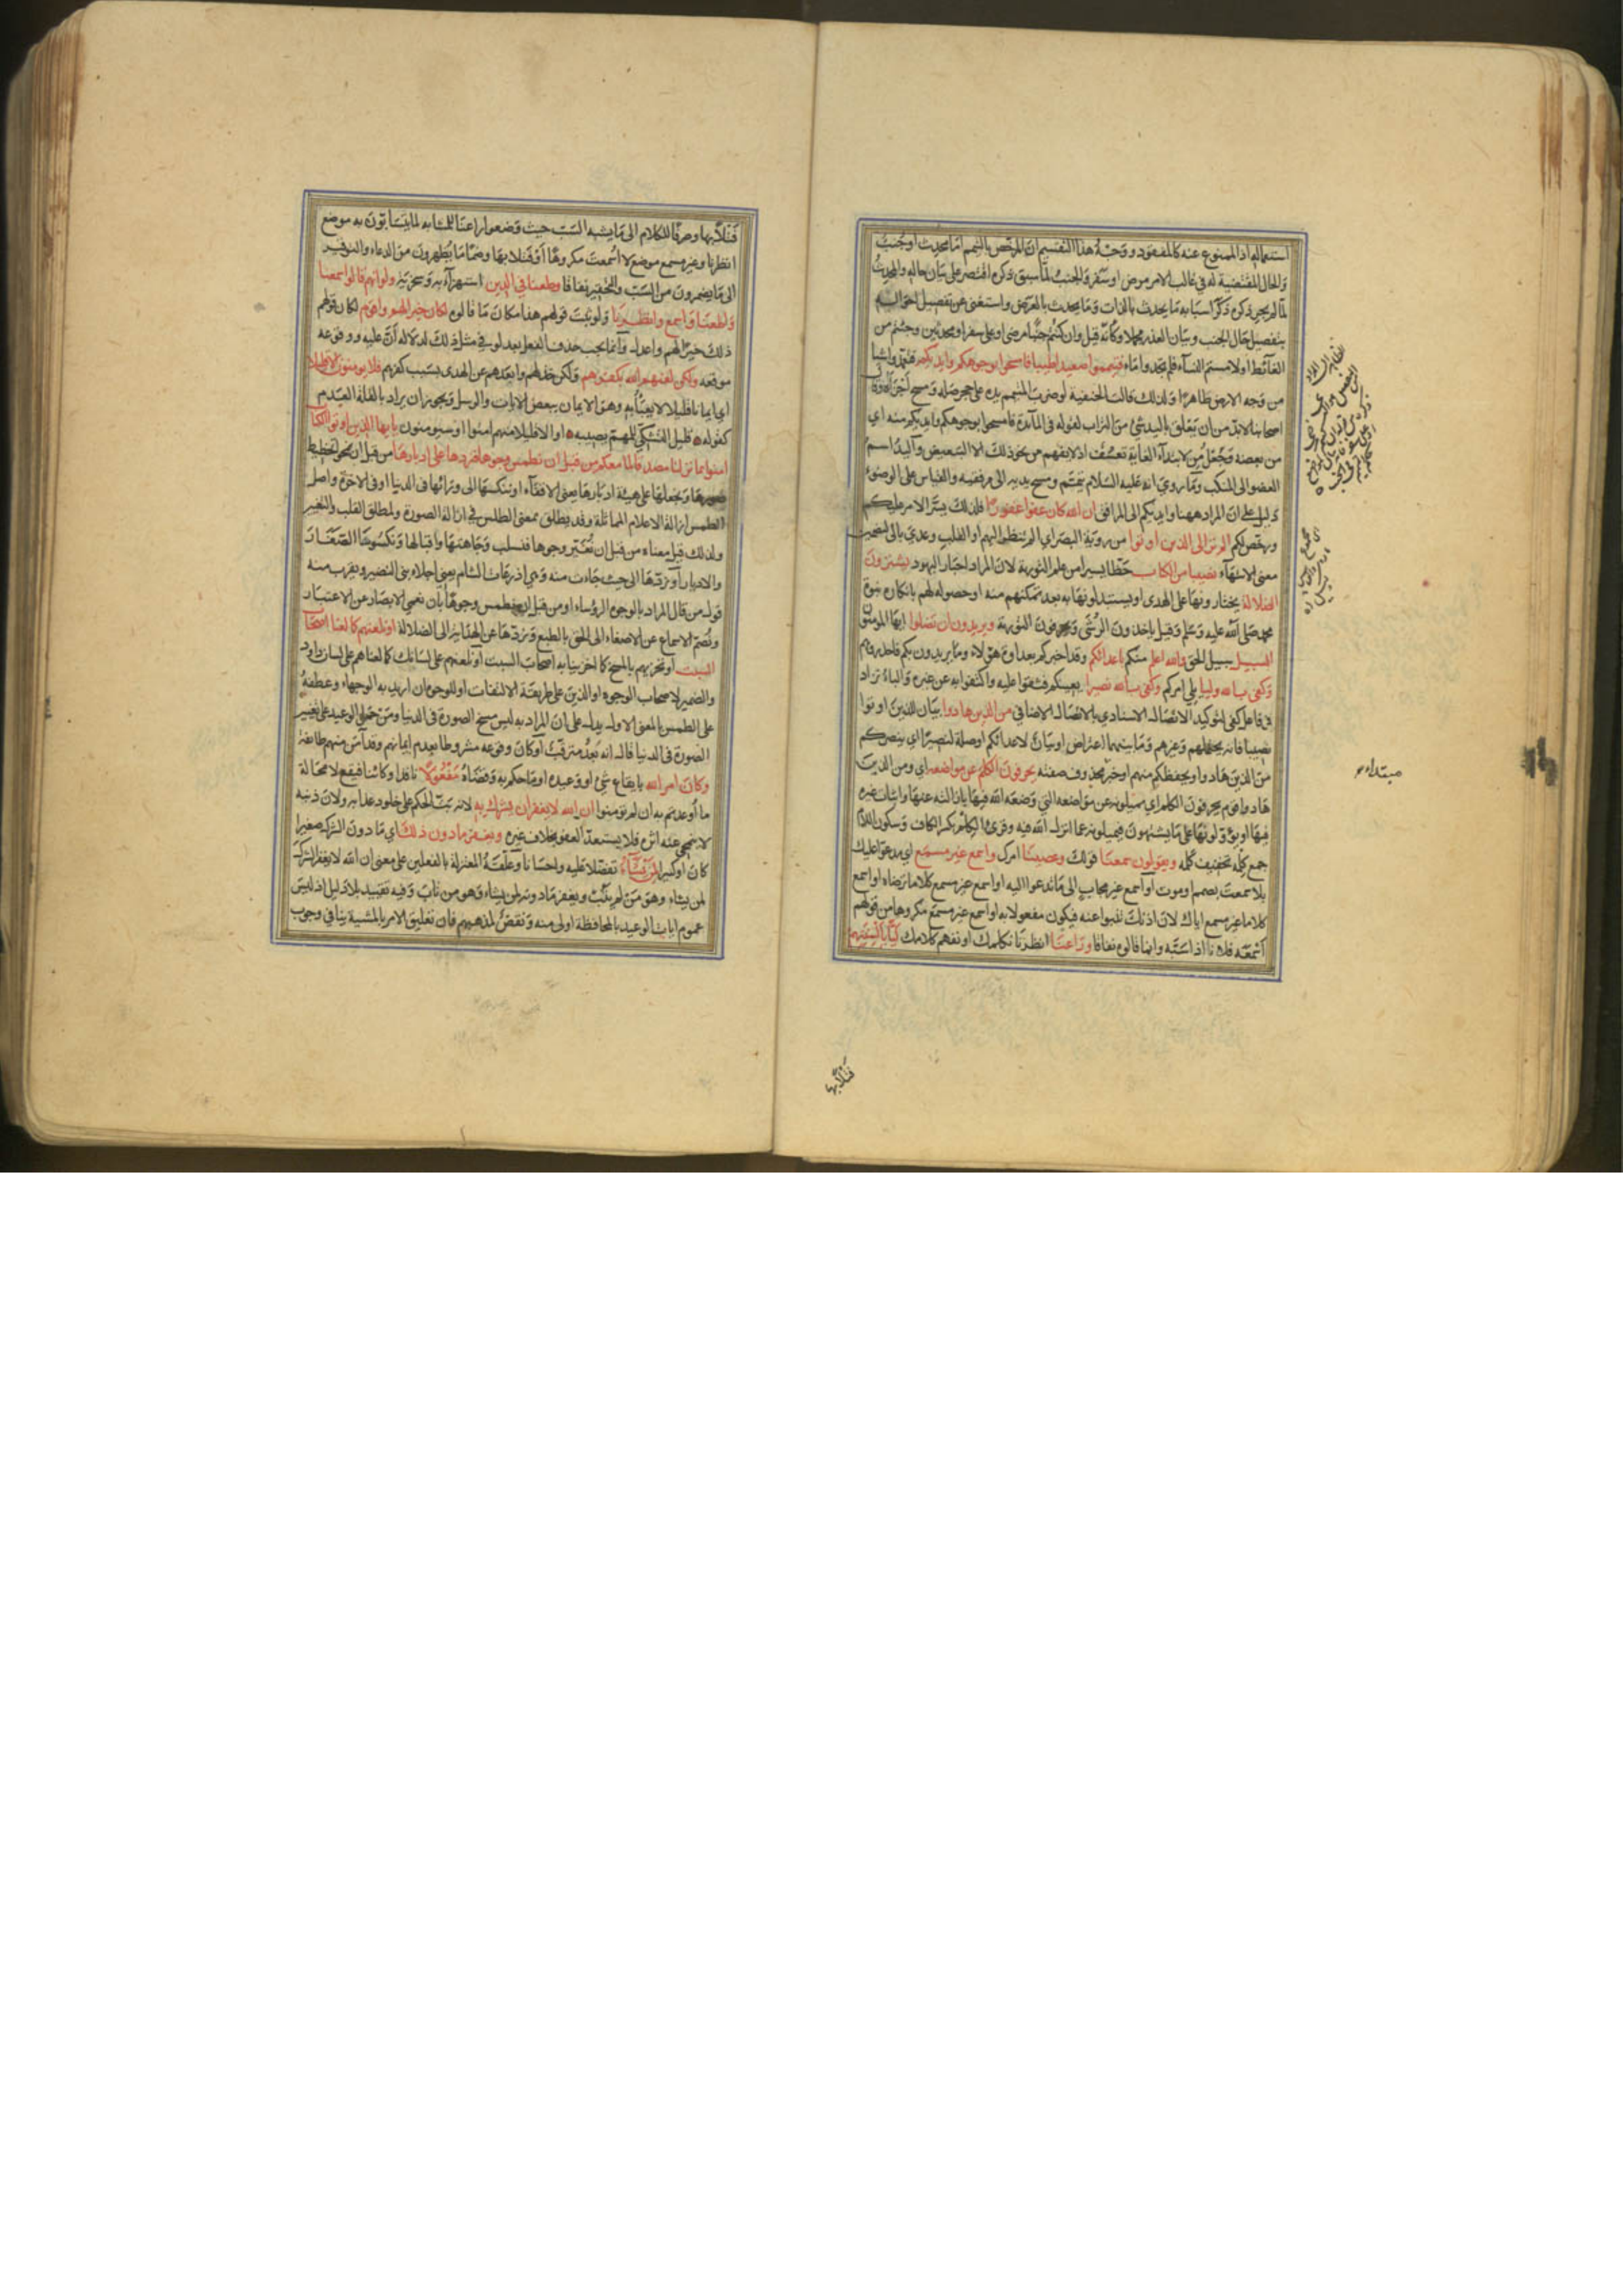 استعماله اذ الممنوع عنه كالمفقود ووجه هذا التقسيم ان المترخص بالتيمم اما محدث او جنب
والحال المقتضية له في غالب الامر مرض او سفر والجنب لما سبق ذكره اقتصر على بيان حاله والمحدث
لما لم يجر ذكره ذكر اسبابه ما يحدث بالذات وما يحدث بالعرض واستغنى عن تفصيل احواله
بتفصيل حال الجنب وبيان العذر مجملا وكانه قيل وان كنتم جنبا مرضى او على سفر او محدثين وجئتم من
الغائط او لامستم النساء فلم تجدوا ماء فتيمموا صعيدا طيبا فامسحوا بوجوهكم وايديكم فتعمدوا شيا
من وجه الارض طاهرا ولذلك قالت الحنفية لو ضرب المتيمم يده على حجر صلد ومسح اجزأه وقال
اصحابنا لابد من ان يعلق باليد شئ من التراب لقوله في المائدة فامسحوا بوجوهكم وايديكم منه اي
من بعضه وجعل من لابتداء الغاية تعسف اذ لا يفهم من نحو ذلك الا التبعيض واليد اسم
العضو الى المنكب وما روي انه عليه السلام تيمم ومسح يديه الى مرفقيه والقياس على الوضوء
دليل على ان المراد ههنا وايديكم الى المرافق ان الله كان عفوا غفورا فلذلك يسر الامر عليكم
ورخص لكم الم تر الى الذين اوتوا من رؤية البصر اي الم تنظر اليهم او القلب وعدي بالى لتضمين
معنى الانتهاء نصيبا من الكتاب حظا يسيرا من علم التورية لان المراد احبار اليهود يشترون
الضلالة يختارونها على الهدى او يستبدلونها به بعد تمكنهم منه او حصوله لهم بانكار نبوة
محمد صلى الله عليه وسلم وقيل ياخذون الرشى ويحرفون التورية ويريدون ان تضلوا ايها المومنون
السبيل سبيل الحق والله اعلم منكم باعدائكم وقد اخبركم بعداوة هؤلاء وما يريدون بكم فاحذروهم
وكفى بالله وليا يلي امركم وكفى بالله نصيرا يعينكم فثقوا عليه واكتفوا به عن غيره والباء تزاد
في فاعل كفى لتوكيد الاتصال الاسنادي بالاتصال الاضافي من الذين هادوا بيان للذين اوتوا
نصيبا فانه يحتملهم وغيرهم وما بينهما اعتراض او بيان لاعدائكم او صلة لنصيرا اي ينصركم
من الذين هادوا ويحفظكم منهم او خبر محذوف صفته يحرفون الكلم عن مواضعه اي ومن الذين
هادوا قوم يحرفون الكلم اي يميلونه عن مواضعه التي وضعه الله فيها بازالته عنها واثبات غيره
فيها او يؤولونها على ما يشتهون فيميلونه عما انزل الله فيه وقرئ الكلم بكسر الكاف وسكون اللام
جمع كلمة تخفيف كلمة ويقولون سمعنا قولك وعصينا امرك واسمع غير مسمع اي مدعوا عليك
بلا سمعت بصمم او موت او اسمع غير مجاب الى ما تدعو اليه او اسمع غير مسمع كلاما ترضاه او اسمع
كلاما غير مسمع اياك لان اذنك تنبو عنه فيكون مفعولا به او اسمع غير مسمع مكروها من قولهم
اسمعه فلان اذا سبه وانما قالوه نفاقا وراعنا انظرنا نكلمك او نفهم كلامك ليا بالسنتهم
مبتداء
فتلا بها
فتلا بها وصرفا للكلام الى ما يشبه السب حيث وضعوا راعنا المشابه لما يتسابون به موضع
انظرنا وغير مسمع موضع لا اسمعت مكروها او فتلا بها وضما ما يظهرون من الدعاء والتوقير
الى ما يضمرون من السب والتحقير نفاقا وطعنا في الدين استهزاء به وسخرية ولو انهم قالوا سمعنا
واطعنا واسمع وانظرنا ولو ثبت قولهم هذا مكان ما قالوه لكان خيرا لهم واقوم لكان قولهم
ذلك خيرا لهم واعدل وانما يجب حذف الفعل بعد لو في مثل ذلك لدلالة ان عليه ووقوعه
موقعه ولكن لعنهم الله بكفرهم ولكن خذلهم وابعدهم عن الهدى بسبب كفرهم فلا يومنون الا قليلا
اي ايمانا قليلا لا يعبأ به وهو الايمان ببعض الايات والرسل ويجوز ان يراد بالقلة العدم
كقوله قليل التشكي للمهم يصيبه او الا قليلا منهم امنوا او سيومنون يا ايها الذين اوتوا الكتاب
امنوا بما نزلنا مصدقا لما معكم من قبل ان نطمس وجوها فنردها على ادبارها من قبل ان نمحو تخطيط
صورها ونجعلها على هيئة ادبارها يعني الاقفاء او ننكسها الى ورائها في الدنيا او في الاخرة واصل
الطمس ازالة الاعلام الماثلة وقد يطلق بمعنى الطلس في ازالة الصورة ولمطلق القلب والتغيير
ولذلك قيل معناه من قبل ان نغير وجوها فنسلب وجاهتها واقبالها ونكسوها الصغار
والادبار او نردها الى حيث جاءت منه وهي اذرعات الشام يعني اجلاء بني النضير ويقرب منه
قول من قال المراد بالوجوه الرؤساء او من قبل ان نطمس وجوها بان نعمي الابصار عن الاعتبار
ونصم الاسماع عن الاصغاء الى الحق بالطبع ونردها عن الهداية الى الضلالة او نلعنهم كما لعنا اصحاب
السبت او نخزيهم بالمسخ كما اخزينا به اصحاب السبت او نلعنهم على لسانك كما لعناهم على لسان داود
والضمير لاصحاب الوجوه او الذين على طريقة الالتفات او للوجوه ان اريد به الوجهاء وعطفه
على الطمس بالمعنى الاول يدل على ان المراد به ليس مسخ الصورة في الدنيا ومن حمل الوعيد على تغيير
الصورة في الدنيا قال انه بعد مترقب او كان وقوعه مشروطا بعدم ايمانهم وقد آمن منهم طائفة
وكان امر الله بايقاع شئ او وعيده او ما حكم به وقضاه مفعولا نافذا وكائنا فيقع لا محالة
ما اوعدتم به ان لم تومنوا ان الله لا يغفر ان يشرك به لانه بت الحكم على خلود عذابه ولان ذنبه
لا ينمحي عنه اثره فلا يستعد للعفو بخلاف غيره ويغفر ما دون ذلك اي ما دون الشرك صغيرا
كان او كبيرا لمن يشاء تفضلا عليه واحسانا وعلقه المعتزلة بالفعلين على معنى ان الله لا يغفر الشرك
لمن يشاء وهو من لم يتب ويغفر ما دونه لمن يشاء وهو من تاب وفيه تقييد بلا دليل اذ ليس
عموم ايات الوعيد بالمحافظة اولى منه ونقض لمذهبهم فان تعليق الامر بالمشية ينافي وجوب